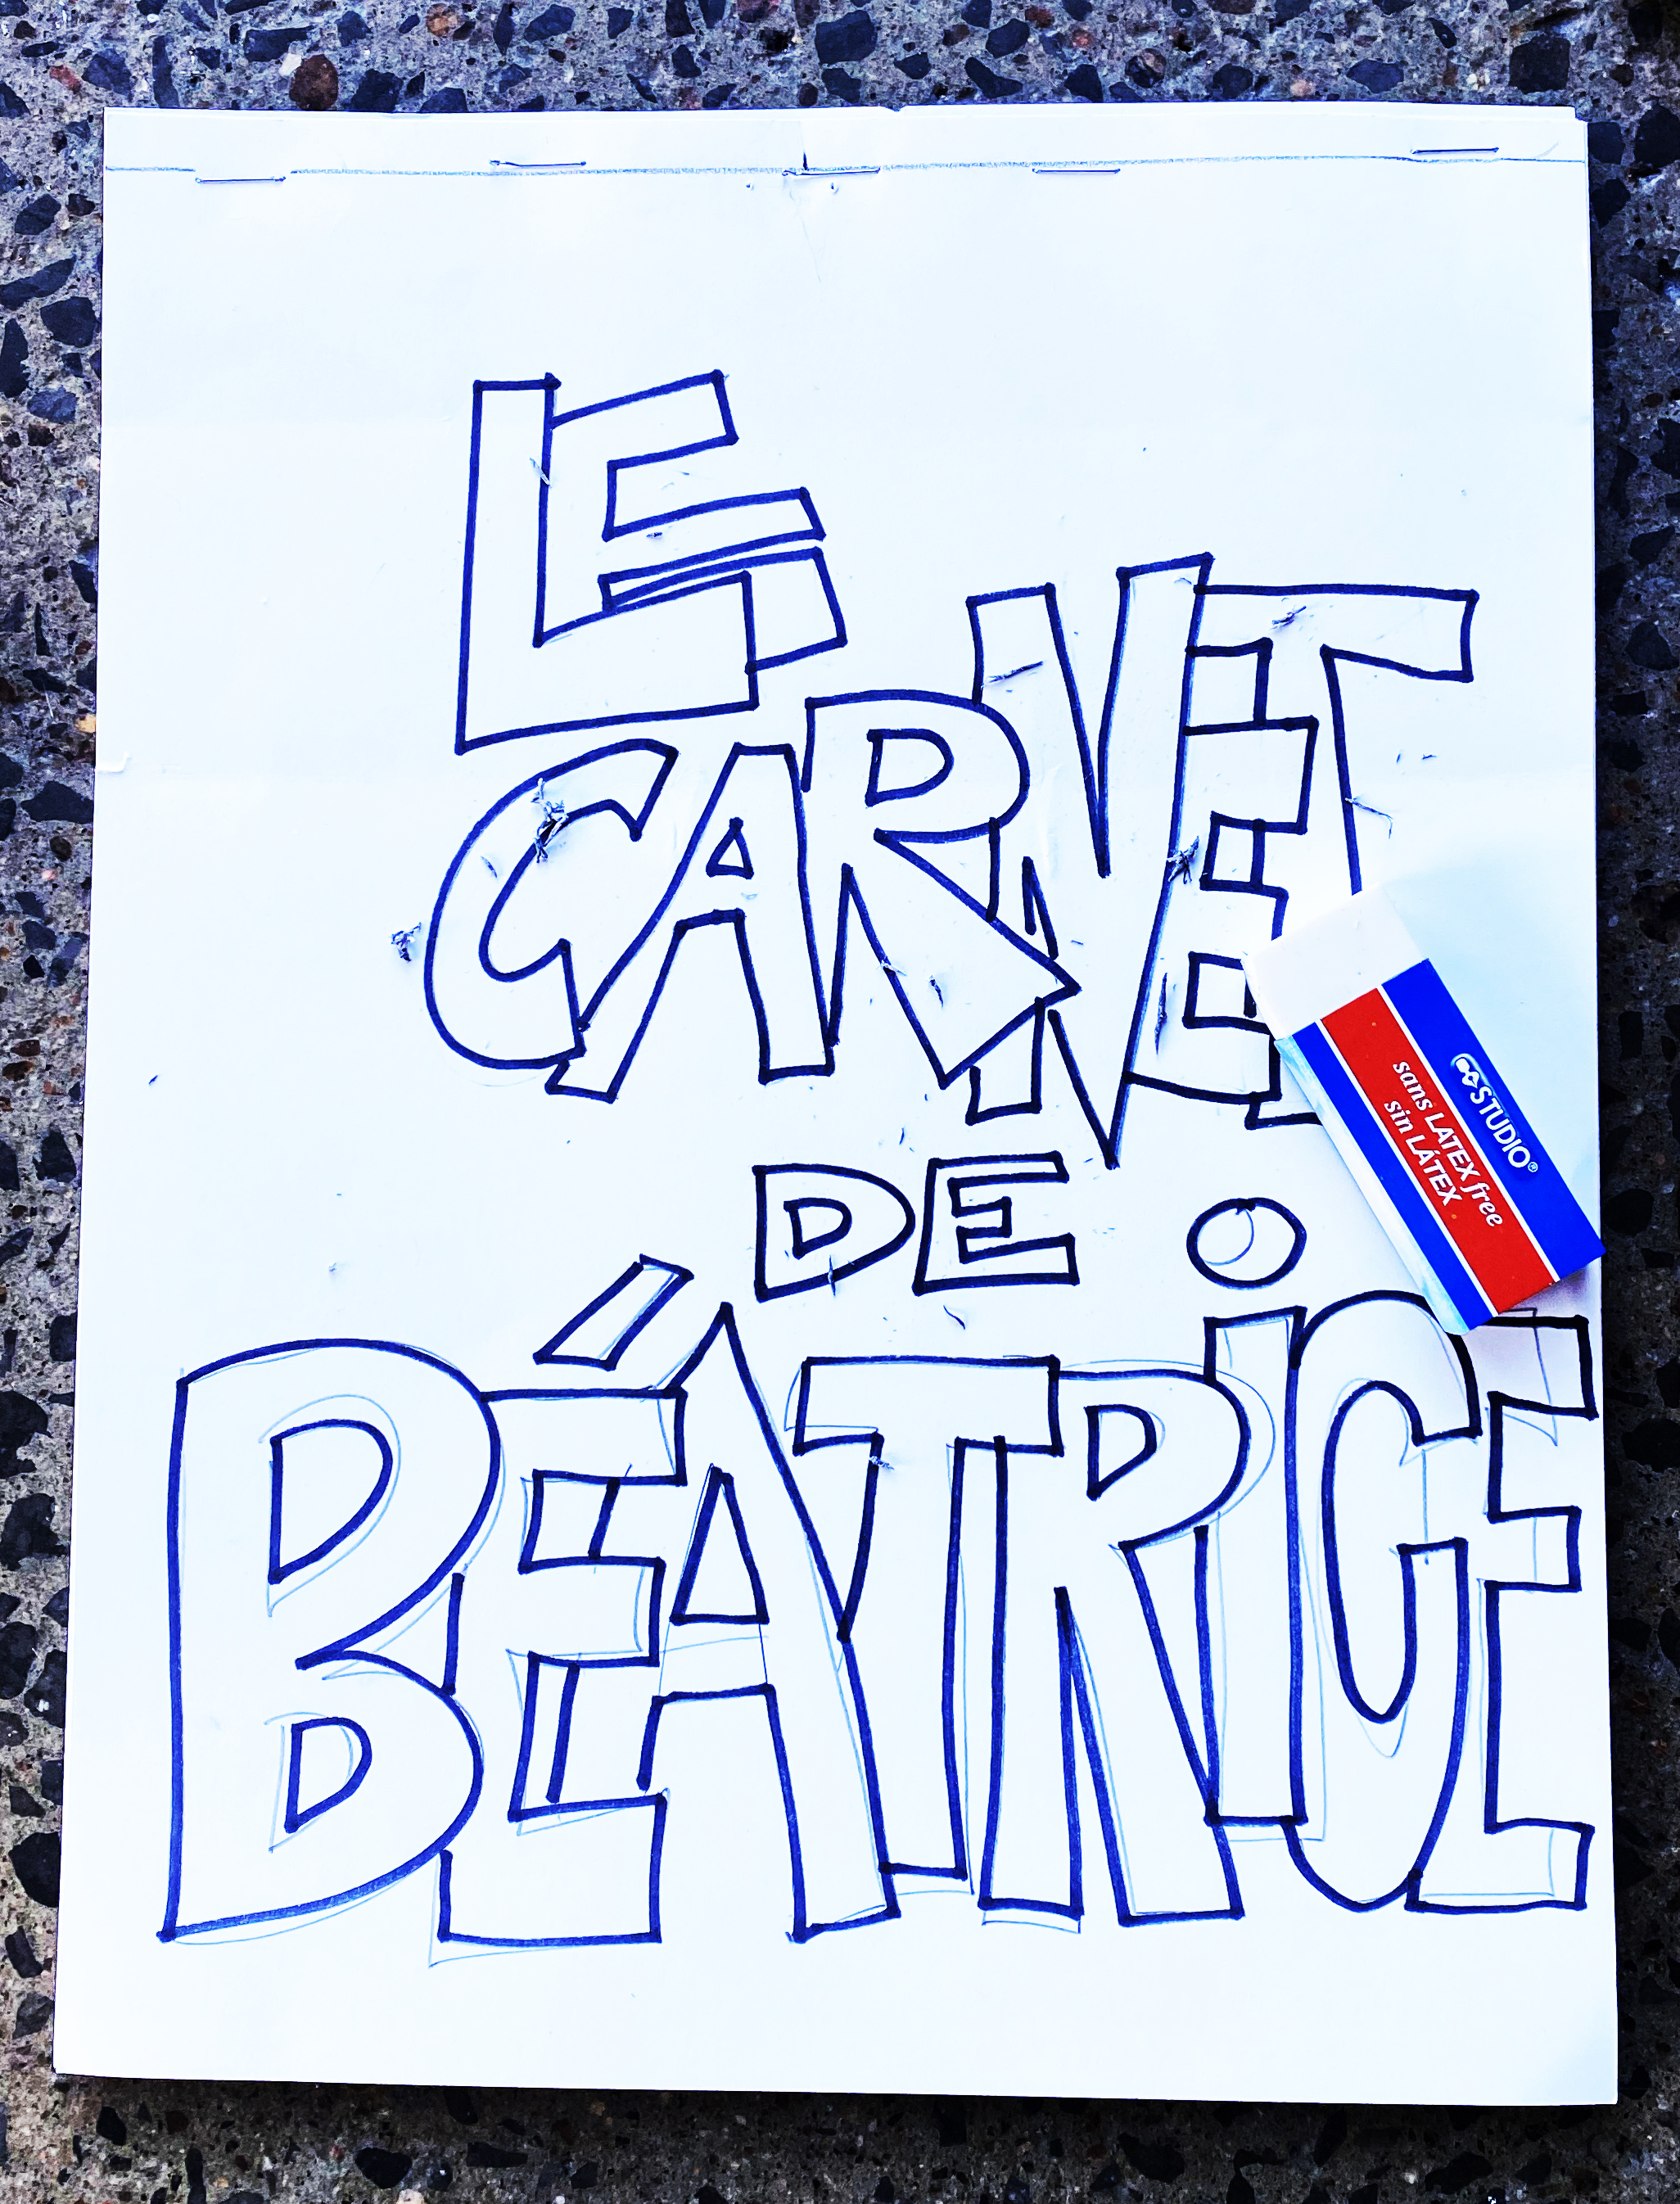 LE
CARNET
DE
BÉATRICE
STUDIO®
sans LATEX free
sin LÁTEX